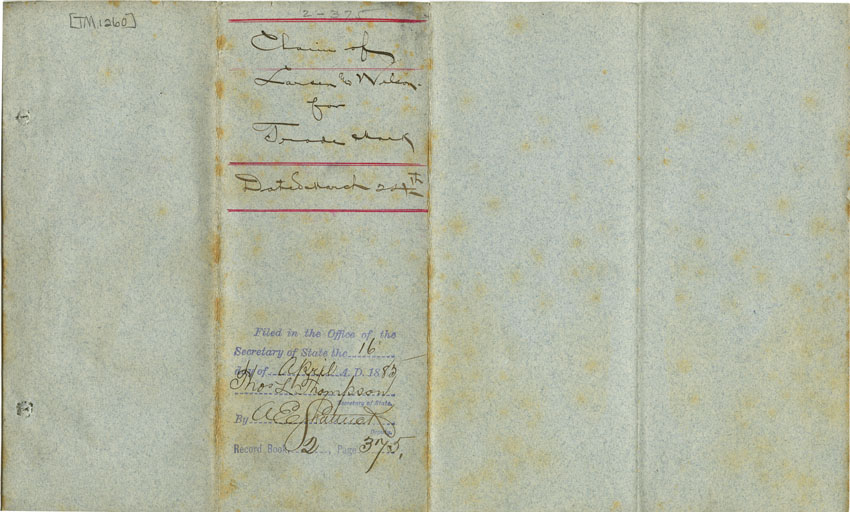 [TM.1260]
2-375
Claim of
Larsen & Wilson
for
Trade Mark
Dated March 24th
Filed in the Office of the
Secretary of State the 16
day of April A. D. 1885
Thos L. Thompson
Secretary of State.
By A E Shattuck
Deputy.
Record Book 2 Page 375.